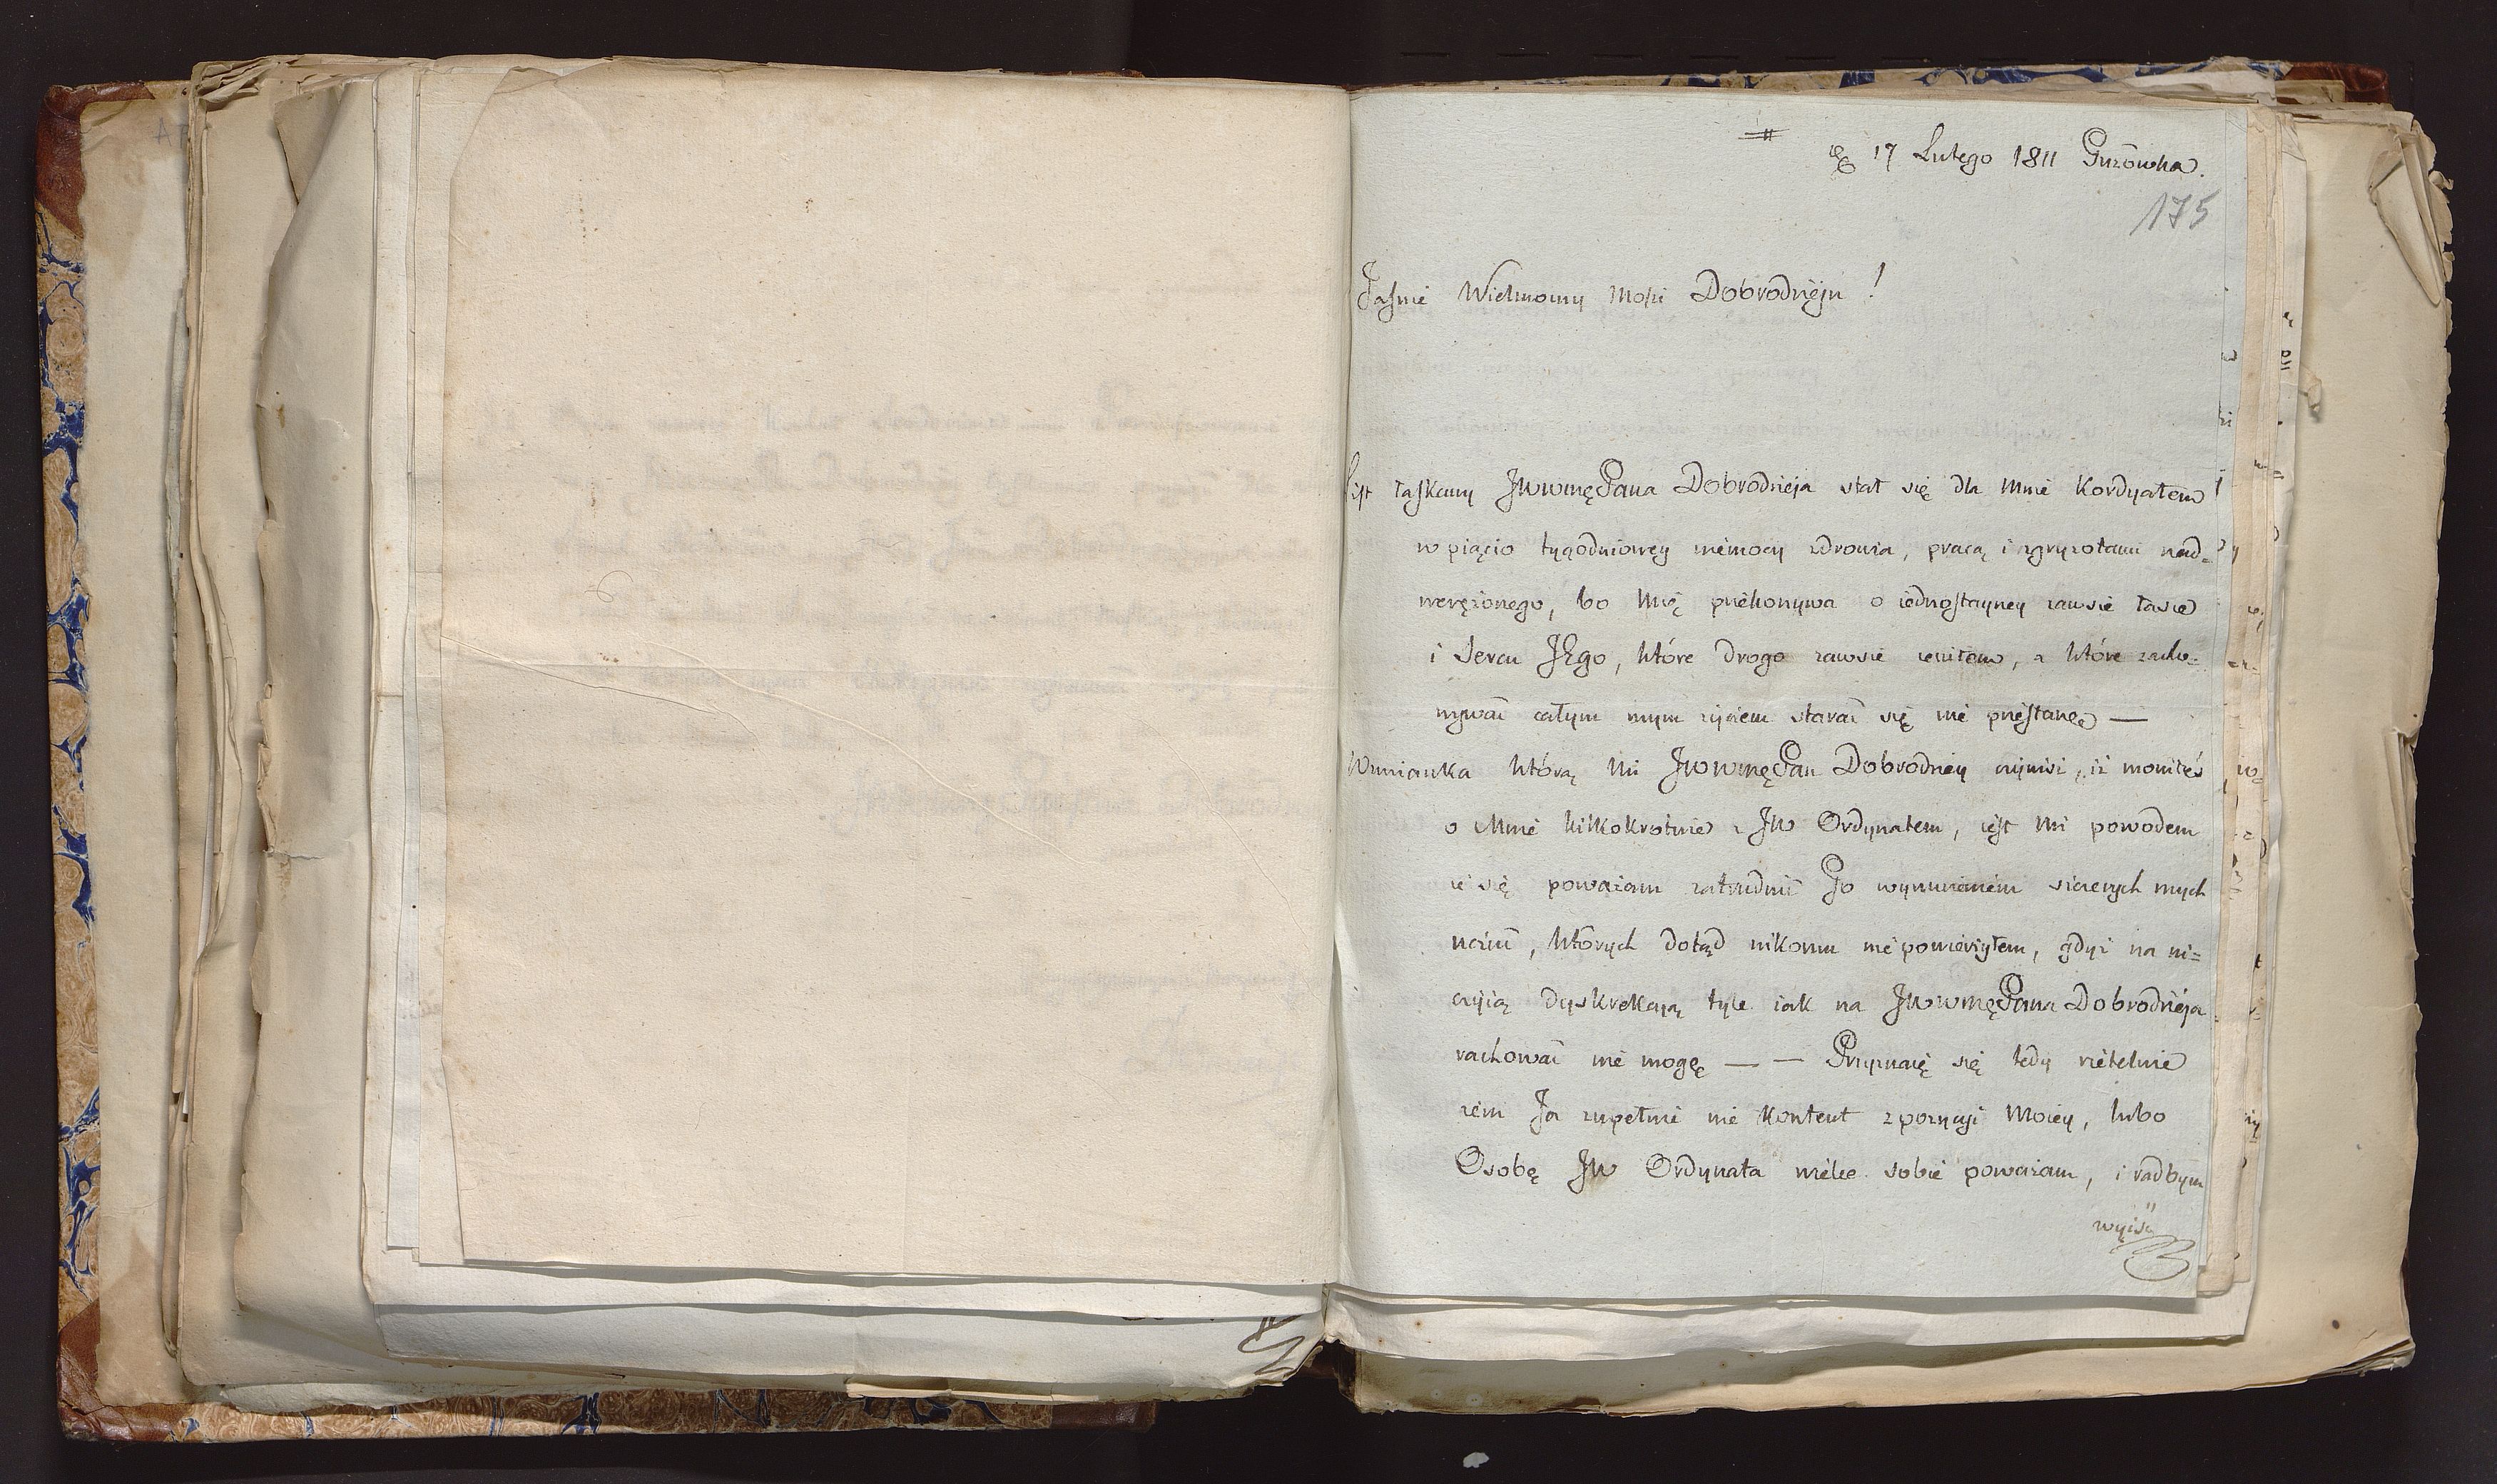 17 Lutego 1811 Guzówka.
175
Jaśnie Wielmożny Mości Dobrodzieju!
list łaskawy JWWmęPana Dobrodzieja stał się dla Mnie Kordyałem
w pięcio tygodniowey niemocy zdrowia, pracą i zgryzotami nad=
weręzonego, bo Mię przekonywa o iednostayney zawsze łasce
i Sercu JEgo, które drogo zawsze ceniłem, a które zacho=
wywać całym mym życiem starać się nie przestanę —
Wzmianka którą Mi JWWmęPan Dobrodziey czynisz, iż mówiłeś
o Mnie kilkokrotnie z JW Ordynatem, iest Mi powodem
że się poważam zatrudnić Go wynurzeniem szczerych mych
uczuć, których dotąd nikomu nie powierzyłem, gdyż na ni=
czyią dyskrekcyą tyle iak na JWWmęPana Dobrodzieja
rachować nie mogę — — Przyznaię się tedy rzetelnie
żem Ja zupełnie nie kontent z pozycyi Moiey, lubo
Osobę JW Ordynata wielce sobie poważam, i radbym
wyiść